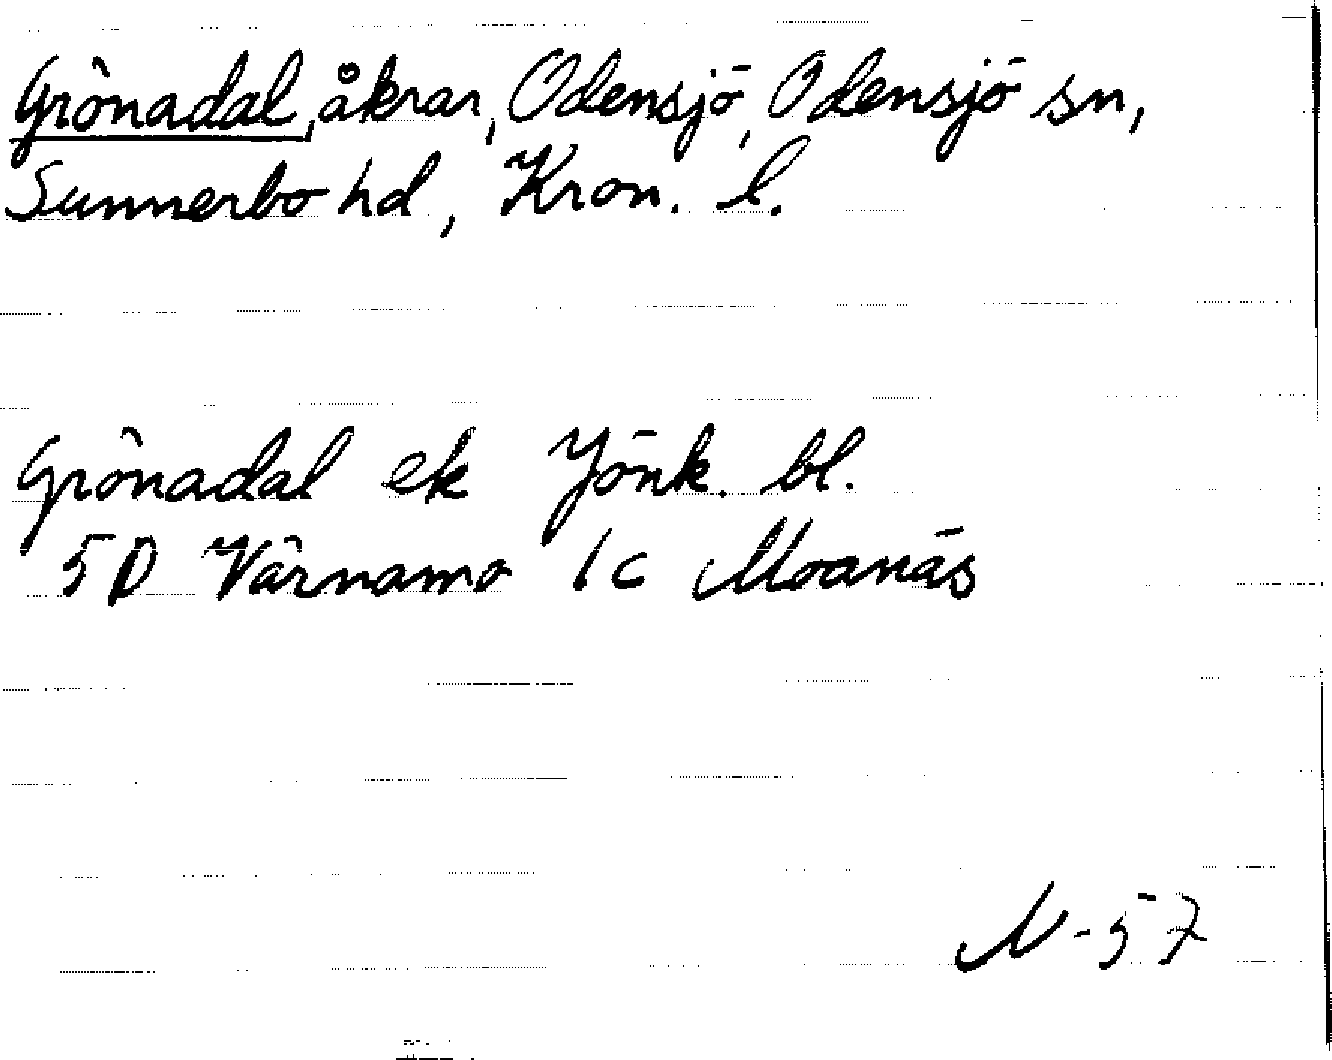 Grönadal, åkrar, Odensjö, Odensjö sn,
Sunnerbo hd, Kron. l.
Grönadal ek Jönk. bl.
5D Värnamo 1c Moanäs
N-57